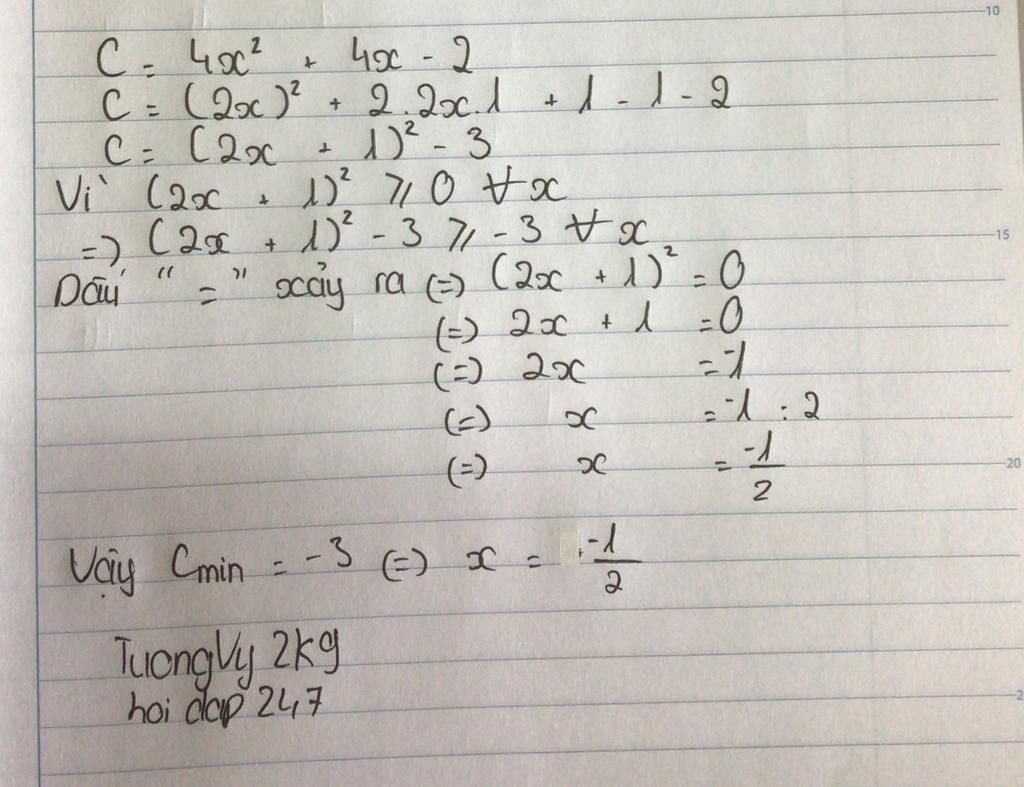 10
C = 4x² + 4x - 2
C = (2x)² + 2.2x.1 + 1 - 1 - 2
C = (2x + 1)² - 3
Vì (2x + 1)² ⩾ 0 ∀ x
=) (2x + 1)² - 3 ⩾ - 3 ∀ x
15
Dấu " = " xảy ra (=) (2x + 1)² = 0
(=) 2x + 1 = 0
(=) 2x = -1
(=) x = -1 : 2
(=) x = -1/2
20
Vậy Cmin = -3 (=) x = -1/2
TuongVy 2kg
hoi dap 24,7
2